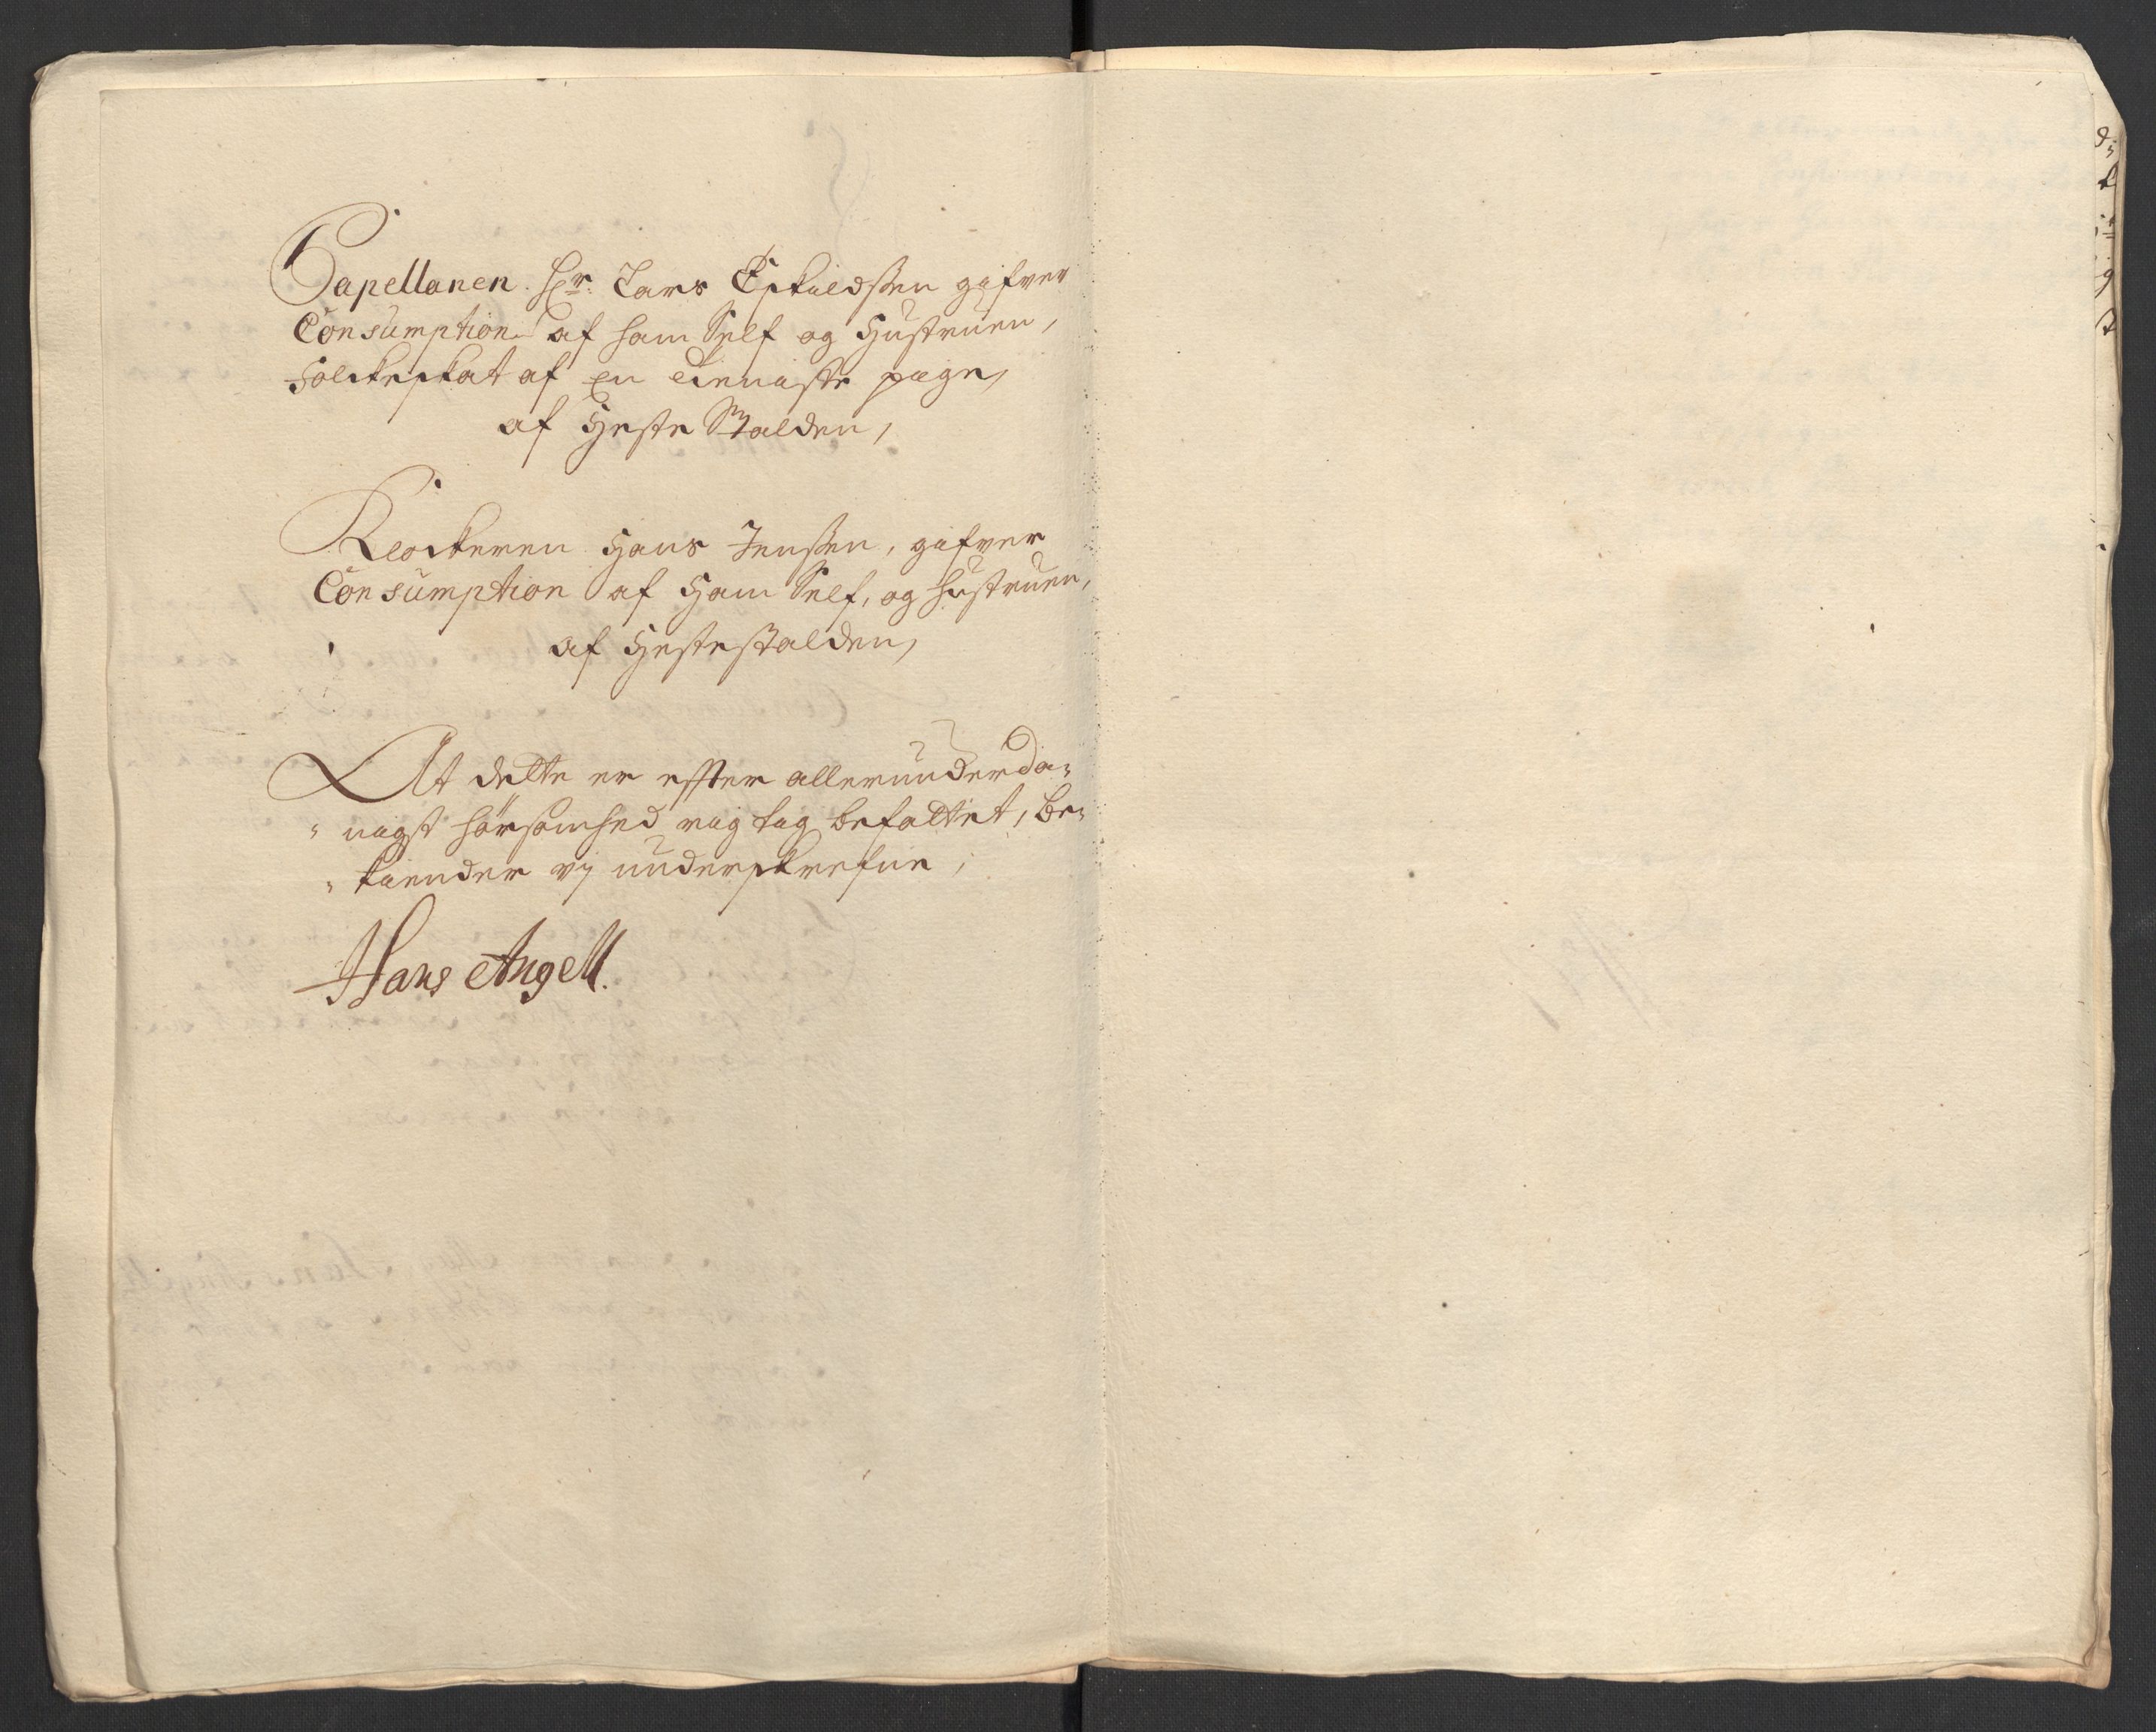 Capellanen Hr: Lars Eskildssen gifver
Consumption af ham Self og Hustruen,
Folckeskat af en tieniste pige,
af Heste Stalden,
Klockeren Hans Jenssen, gifver
Consumption af Ham Self, og Hustruen,
af Hestestalden,
At dette er effter allerunderda-
nigst hörsomhed rigtig befattet, be-
kiender vj underskrefne,
Hans Angell.